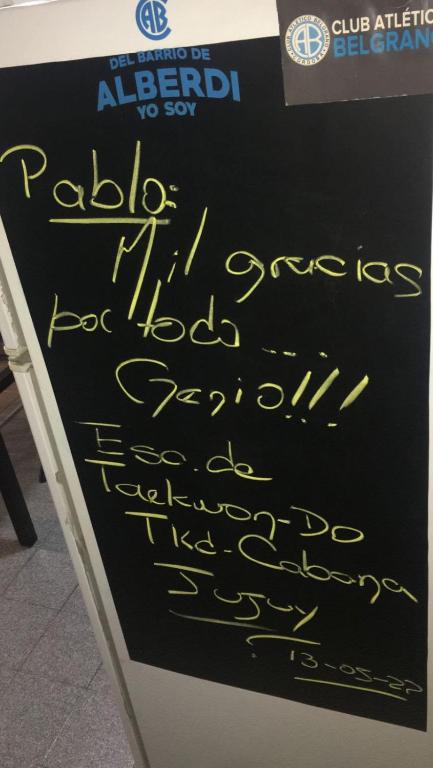 CAB
DEL BARRIO DE
ALBERDI
YO SOY
CLUB ATLÉTICO BELGRANO
CÓRDOBA
CLUB ATLÉTI
BELGRANO
Pablo:
Mil gracias
por todo ....
Genio!!!
Esc. de
Taekwon-Do
TKd-Cabana
Jujuy
13-05-22